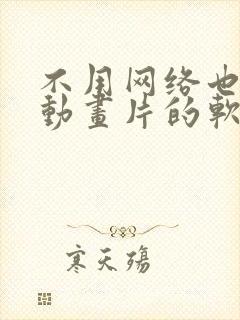 不用网络也
動畫片的軟
寒天殇